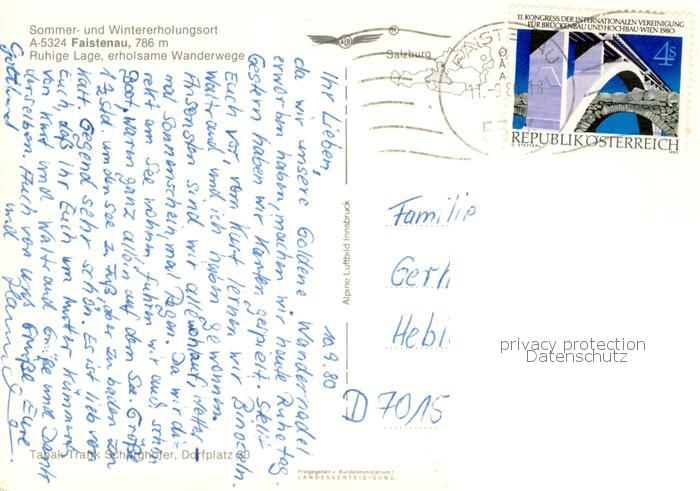 Sommer- und Wintererholungsort
A-5324 Faistenau, 786 m
Ruhige Lage, erholsame Wanderwege
10.9.80
Ihr Lieben,
da wir unsere Goldene Wandernadel
erworben haben, machen wir heute Ruhetag.
Gestern haben wir Karten gespielt. Stellt
Euch vor, vom Kurt lernen wir Binokeln.
Waltraud und ich haben gewonnen.
Ansonsten sind wir alle wohlauf, Wetter-
mal Sonnenschein, mal Regen. Da wir di-
rekt am See wohnen, fuhren wir auch schon
Boot, waren ganz allein auf dem See. Größe
1½ Std. um den See zu Fuß, aber zu baden zu
kalt. Gegend sehr schön. Es ist lieb von
Euch, daß Ihr Euch um Mutter kümmert.
Von Kurt und Waltraud Grüße und Dank
derselben. Auch von uns Grüße Eure
Gotthard und
Tabak-Trafik Schörghofer, Dorfplatz 80
Alpine Luftbild Innsbruck
Freigegeben v. Bundesministerium f.
LANDESVERTEIDIGUNG
ALB
Salzburg
FAISTENAU
11.-9.8
II. KONGRESS DER INTERNATIONALEN VEREINIGUNG
FÜR BRÜCKENBAU UND HOCHBAU WIEN 1980
4s
REPUBLIK ÖSTERREICH
1980
Familie
Gerh
Hebi
D 7015
privacy protection
Datenschutz